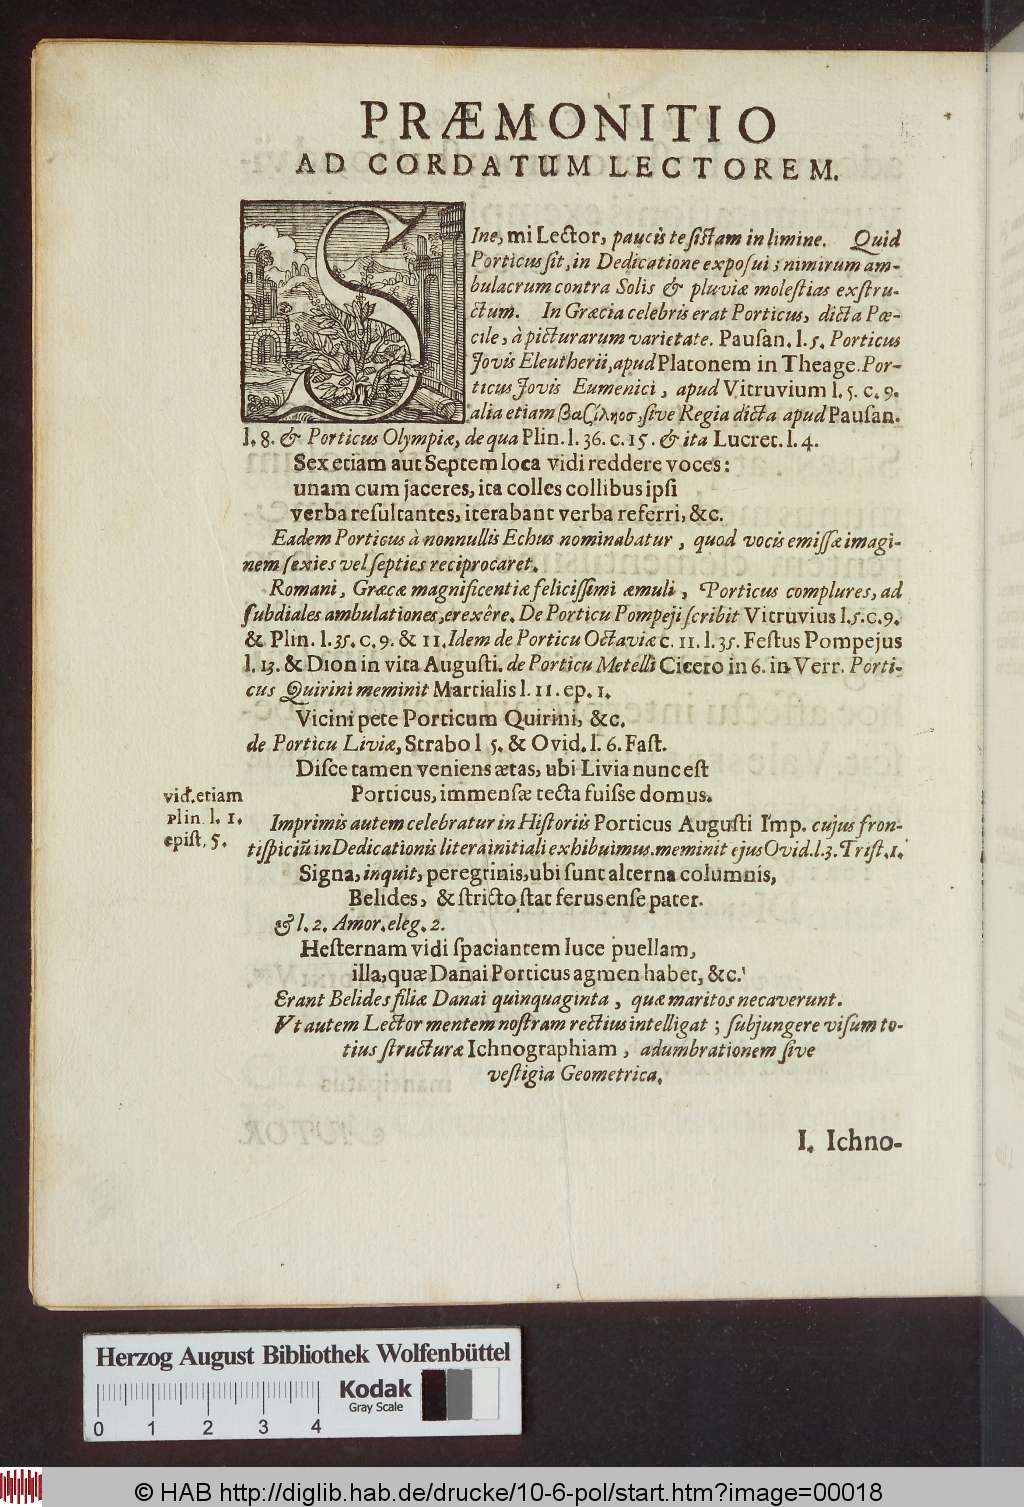 PRÆMONITIO
AD CORDATUM LECTOREM.
SIne, mi Lector, paucis te sistam in limine. Quid
Porticus sit, in Dedicatione exposui; nimirum am-
bulacrum contra Solis & pluviæ molestias exstru-
ctum. In Græcia celebris erat Porticus, dicta Pœ-
cile, à picturarum varietate. Pausan. l. 5. Porticus
Jovis Eleutherii, apud Platonem in Theage. Por-
ticus Jovis Eumenici, apud Vitruvium l. 5. c. 9.
alia etiam sive Regia dicta apud Pausan.
l. 8. & Porticus Olympiæ, de qua Plin. l. 36. c. 15. & ita Lucret. l. 4.
Sex etiam aut Septem loca vidi reddere voces:
unam cum jaceres, ita colles collibus ipsi
verba resultantes, iterabant verba referri, &c.
Eadem Porticus à nonnullis Echus nominabatur, quod vocis emissæ imagi-
nem sexies vel septies reciprocaret.
Romani, Græcæ magnificentiæ felicissimi æmuli, Porticus complures, ad
subdiales ambulationes, erexêre. De Porticu Pompeji scribit Vitruvius l. 5. c. 9.
& Plin. l. 35. c. 9. & 11. Idem de Porticu Octaviæ c. 11. l. 35. Festus Pompejus
l. 13. & Dion in vita Augusti. de Porticu Metelli Cicero in 6. in Verr. Porti-
cus Quirini meminit Martialis l. 11. ep. 1.
Vicini pete Porticum Quirini, &c.
de Porticu Liviæ, Strabo l 5. & Ovid. l. 6. Fast.
Disce tamen veniens ætas, ubi Livia nunc est
Porticus, immensæ tecta fuisse domus.
vid. etiam
Plin. l. 1.
epist. 5.
Imprimis autem celebratur in Historiis Porticus Augusti Imp. cujus fron-
tispiciũ in Dedicationis litera initiali exhibuimus. meminit ejus Ovid. l. 3. Trist. 1.
Signa, inquit, peregrinis, ubi sunt alterna columnis,
Belides, & stricto stat ferus ense pater.
& l. 2. Amor. eleg. 2.
Hesternam vidi spaciantem luce puellam,
illa, quæ Danai Porticus agmen habet, &c.
Erant Belides filiæ Danai quinquaginta, quæ maritos necaverunt.
Vt autem Lector mentem nostram rectius intelligat; subjungere visum to-
tius structuræ Ichnographiam, adumbrationem sive
vestigia Geometrica.
I. Ichno-
Herzog August Bibliothek Wolfenbüttel
Kodak
Gray Scale
0 1 2 3 4
© HAB http://diglib.hab.de/drucke/10-6-pol/start.htm?image=00018